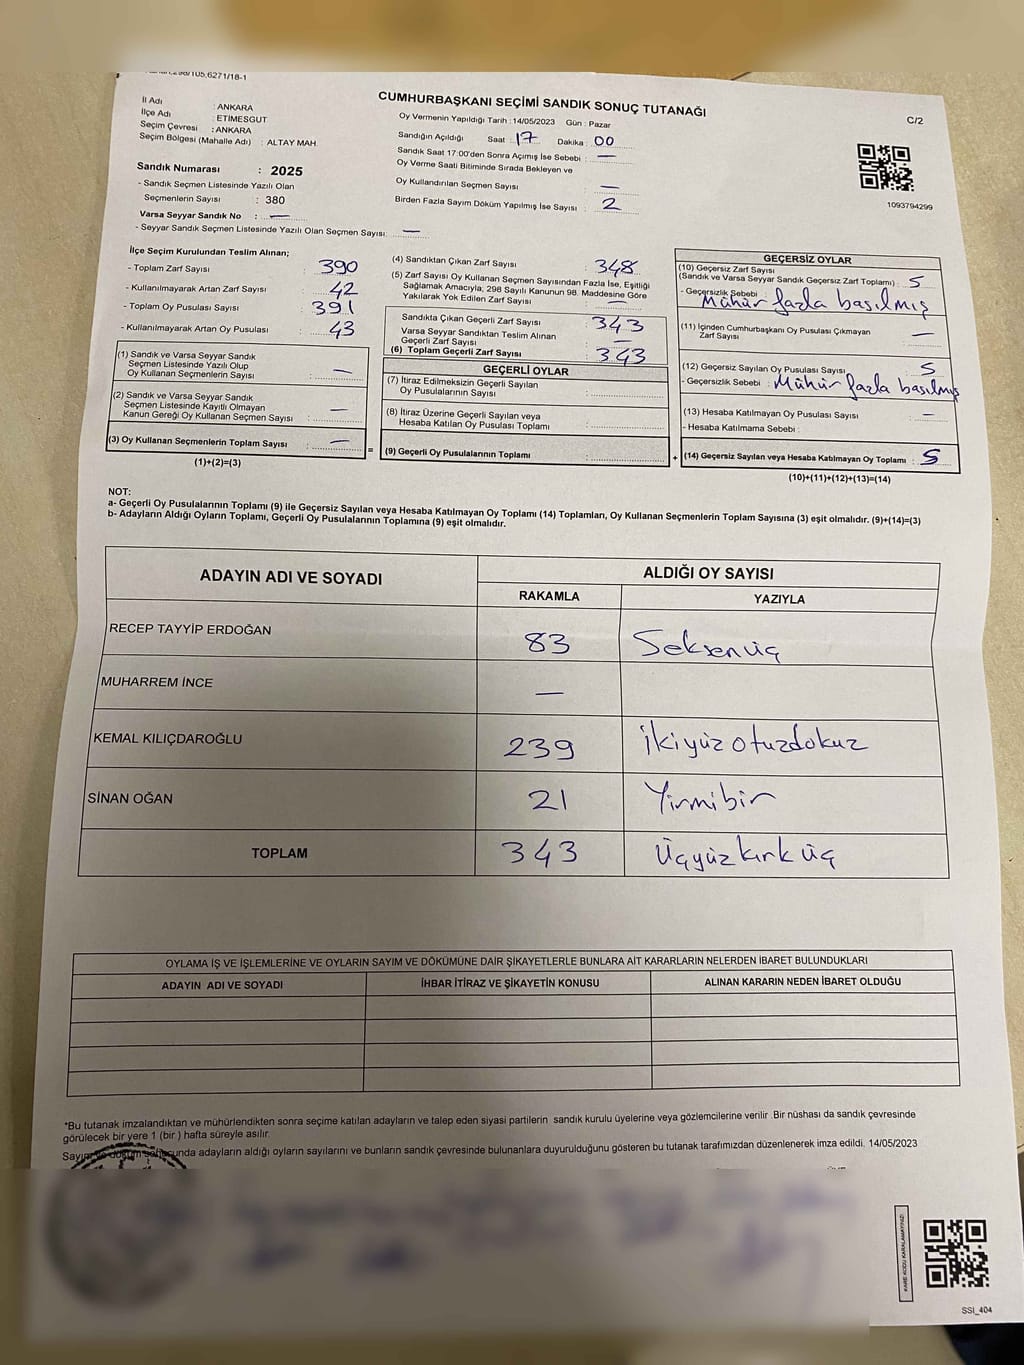 CUMHURBAŞKANI SEÇİMİ SANDIK SONUÇ TUTANAĞI
C/2
İl Adı : ANKARA
İlçe Adı : ETİMESGUT
Seçim Çevresi : ANKARA
Seçim Bölgesi (Mahalle Adı) : ALTAY MAH.
Oy Vermenin Yapıldığı Tarih : 14/05/2023 Gün : Pazar
Sandığın Açıldığı Saat : 17 Dakika : 00
Sandık Saat 17:00'den Sonra Açımış İse Sebebi : —
Oy Verme Saati Bitiminde Sırada Bekleyen ve
Oy Kullandırılan Seçmen Sayısı : —
Birden Fazla Sayım Döküm Yapılmış İse Sayısı : 2
1093794299
Sandık Numarası : 2025
- Sandık Seçmen Listesinde Yazılı Olan
Seçmenlerin Sayısı : 380
Varsa Seyyar Sandık No : —
- Seyyar Sandık Seçmen Listesinde Yazılı Olan Seçmen Sayısı: —
İlçe Seçim Kurulundan Teslim Alınan;
- Toplam Zarf Sayısı : 390
- Kullanılmayarak Artan Zarf Sayısı : 42
- Toplam Oy Pusulası Sayısı : 391
- Kullanılmayarak Artan Oy Pusulası : 43
(1) Sandık ve Varsa Seyyar Sandık
Seçmen Listesinde Yazılı Olup
Oy Kullanan Seçmenlerin Sayısı : —
(2) Sandık ve Varsa Seyyar Sandık
Seçmen Listesinde Kayıtlı Olmayan
Kanun Gereği Oy Kullanan Seçmen Sayısı : —
(3) Oy Kullanan Seçmenlerin Toplam Sayısı : —
(1)+(2)=(3)
(4) Sandıktan Çıkan Zarf Sayısı : 348
(5) Zarf Sayısı Oy Kullanan Seçmen Sayısından Fazla İse, Eşitliği
Sağlamak Amacıyla, 298 Sayılı Kanunun 98. Maddesine Göre
Yakılarak Yok Edilen Zarf Sayısı : —
Sandıkta Çıkan Geçerli Zarf Sayısı : 343
Varsa Seyyar Sandıktan Teslim Alınan
Geçerli Zarf Sayısı : —
(6) Toplam Geçerli Zarf Sayısı : 343
GEÇERLİ OYLAR
(7) İtiraz Edilmeksizin Geçerli Sayılan
Oy Pusulalarının Sayısı :
(8) İtiraz Üzerine Geçerli Sayılan veya
Hesaba Katılan Oy Pusulası Toplamı :
= (9) Geçerli Oy Pusulalarının Toplamı :
GEÇERSİZ OYLAR
(10) Geçersiz Zarf Sayısı
(Sandık ve Varsa Seyyar Sandık Geçersiz Zarf Toplamı) : 5
- Geçersizlik Sebebi : Mühür fazla basılmış
(11) İçinden Cumhurbaşkanı Oy Pusulası Çıkmayan
Zarf Sayısı : —
(12) Geçersiz Sayılan Oy Pusulası Sayısı : 5
- Geçersizlik Sebebi : Mühür fazla basılmış
(13) Hesaba Katılmayan Oy Pusulası Sayısı : —
- Hesaba Katılmama Sebebi :
+ (14) Geçersiz Sayılan veya Hesaba Katılmayan Oy Toplamı : 5
(10)+(11)+(12)+(13)=(14)
NOT:
a- Geçerli Oy Pusulalarının Toplamı (9) ile Geçersiz Sayılan veya Hesaba Katılmayan Oy Toplamı (14) Toplamları, Oy Kullanan Seçmenlerin Toplam Sayısına (3) eşit olmalıdır. (9)+(14)=(3)
b- Adayların Aldığı Oyların Toplamı, Geçerli Oy Pusulalarının Toplamına (9) eşit olmalıdır.
ADAYIN ADI VE SOYADI ALDIĞI OY SAYISI
RAKAMLA YAZIYLA
RECEP TAYYİP ERDOĞAN 83 Seksenüç
MUHARREM İNCE —
KEMAL KILIÇDAROĞLU 239 İkiyüzotuzdokuz
SİNAN OĞAN 21 Yirmibir
TOPLAM 343 Üçyüzkırküç
OYLAMA İŞ VE İŞLEMLERİNE VE OYLARIN SAYIM VE DÖKÜMÜNE DAİR ŞİKAYETLERLE BUNLARA AİT KARARLARIN NELERDEN İBARET BULUNDUKLARI
ADAYIN ADI VE SOYADI İHBAR İTİRAZ VE ŞİKAYETİN KONUSU ALINAN KARARIN NEDEN İBARET OLDUĞU
*Bu tutanak imzalandıktan ve mühürlendikten sonra seçime katılan adayların ve talep eden siyasi partilerin sandık kurulu üyelerine veya gözlemcilerine verilir. Bir nüshası da sandık çevresinde
görülecek bir yere 1 (bir ) hafta süreyle asılır.
adayların aldığı oyların sayılarını ve bunların sandık çevresinde bulunanlara duyurulduğunu gösteren bu tutanak tarafımızdan düzenlenerek imza edildi. 14/05/2023
KARE KODU KARALAMAYINIZ!
SSİ_404